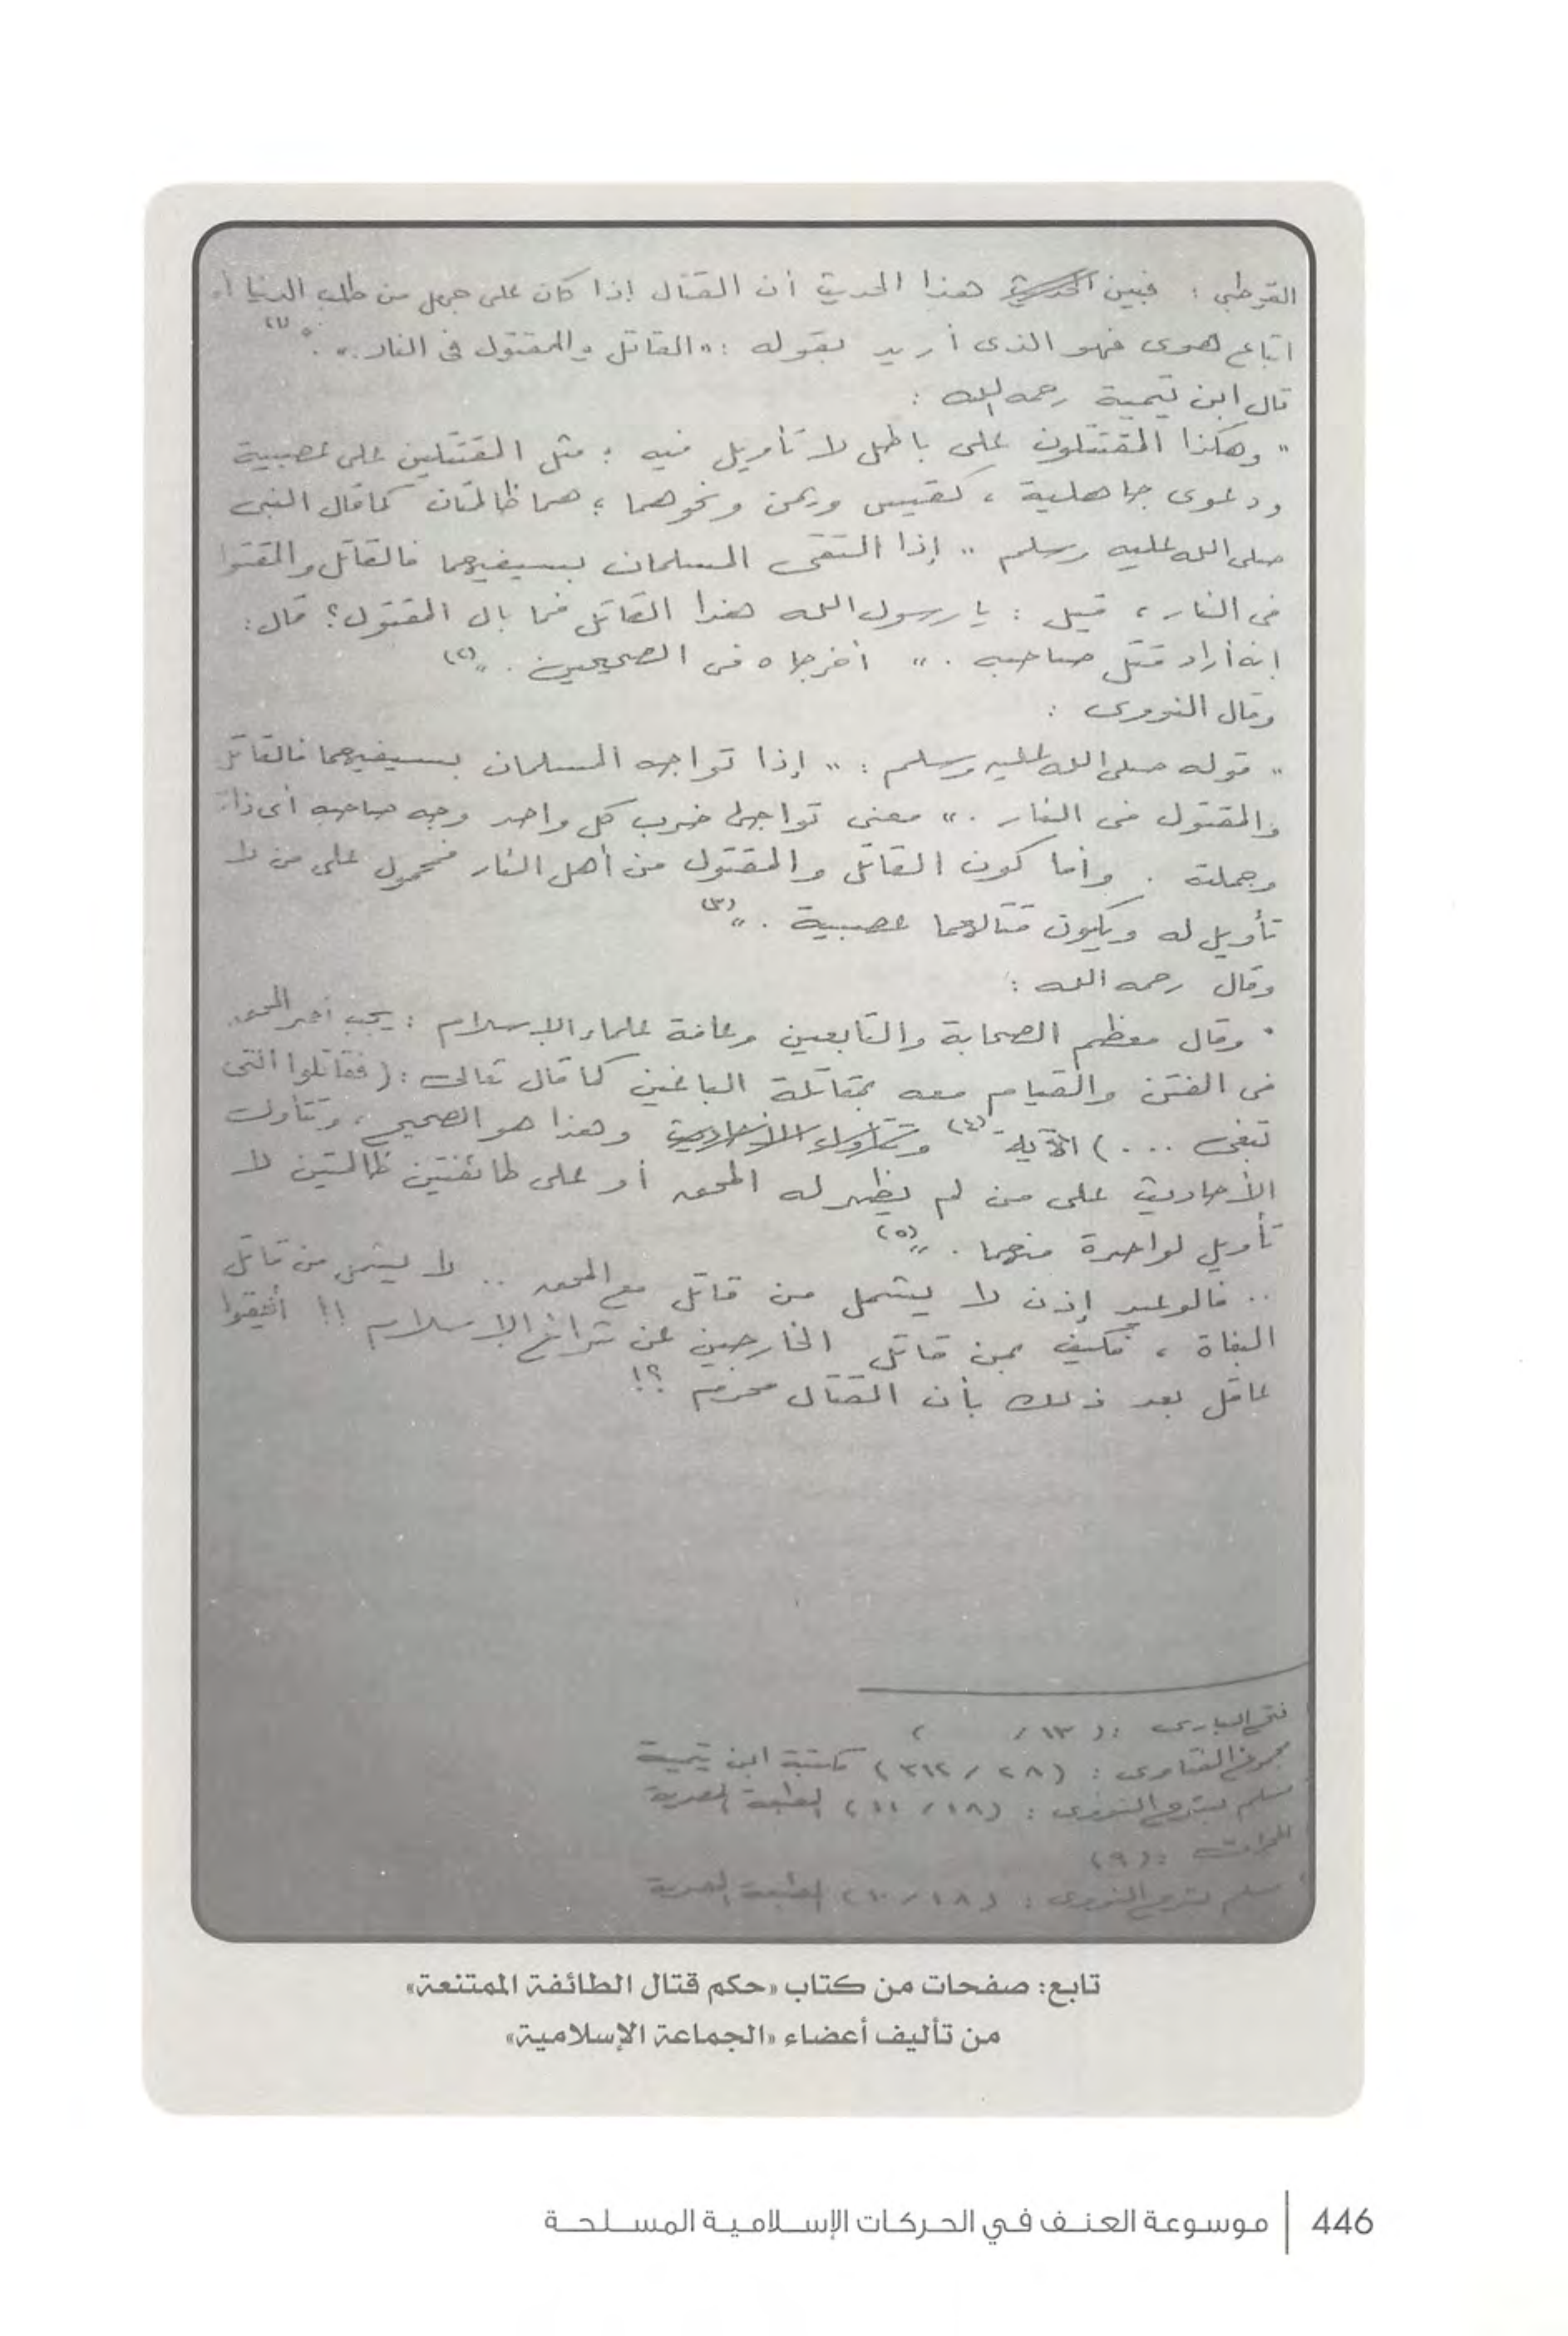 القرطبي : فبين هذا الحديث أن القتال إذا كان على جهل من طلب الدنيا أو
اتباع هوى فهو الذى أريد بقوله : « القاتل والمقتول فى النار . » . (١)
قال ابن تيمية رحمه الله :
" وهكذا المقتتلون على باطل لا تأويل فيه ؛ مثل المقتتلين على عصبية
ودعوى جاهلية ، كقيس ويمن ونحوهما ؛ هما ظالمتان كما قال النبى
صلى الله عليه وسلم " إذا التقى المسلمان بسيفيهما فالقاتل والمقتو
فى النار ، قيل : يا رسول الله هذا القاتل فما بال المقتول ؟ قال :
إنه أراد قتل صاحبه . " أخرجاه فى الصحيحين . " (٢)
وقال النووى :
" قوله صلى الله عليه وسلم : " إذا تواجه المسلمان بسيفيهما فالقاتل
والمقتول فى النار . " معنى تواجها ضرب كل واحد وجه صاحبه أى ذاته
وجملته . وأما كون القاتل والمقتول من أهل النار فمحمول على من لا
تأويل له ويكون قتالهما عصبية . " (٣)
وقال رحمه الله :
" وقال معظم الصحابة والتابعين وعامة علماء الإسلام : يجب نصر المحق
فى الفتن والقيام معه بمقاتلة الباغين كما قال تعالى : ( فقاتلوا التى
تبغى ... ) الآية (٤) وتتأول الأحاديث وهذا هو الصحيح ، وتتأول
الأحاديث على من لم يظهر له المحق أو على طائفتين ظالمتين لا
تأويل لواحدة منهما . " (٥)
.. فالوعيد إذن لا يشمل من قاتل مع المحق .. لا يشمل من قاتل
البغاة ، فكيف بمن قاتل الخارجين عن شرائع الإسلام !! أفيقوا
عاقل بعد ذلك بأن القتال محرم ؟!
فتح البارى : ( ١٣ / )
مجموع الفتاوى : ( ٢٨ / ٣١٢ ) مكتبة ابن تيمية
مسلم بشرح النووى : ( ١٨ / ١١ ) المطبعة المصرية
الحجرات : ( ٩ )
مسلم بشرح النووى : ( ١٨ / ١٠ ) المطبعة المصرية
تابع: صفحات من كتاب «حكم قتال الطائفة الممتنعة»
من تأليف أعضاء «الجماعة الإسلامية»
446 | موسوعة العنف في الحركات الإسلامية المسلحة